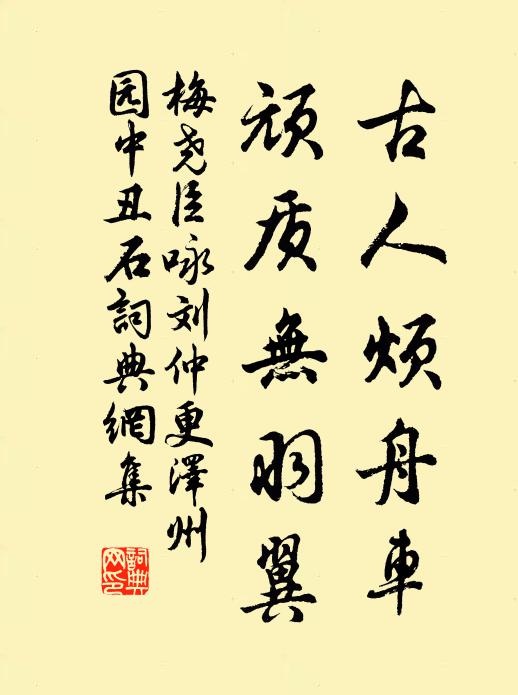 古人烦舟車
顽质無羽翼
梅尧臣咏刘仲更澤州
园中丑石詞典網集
詞典
网印